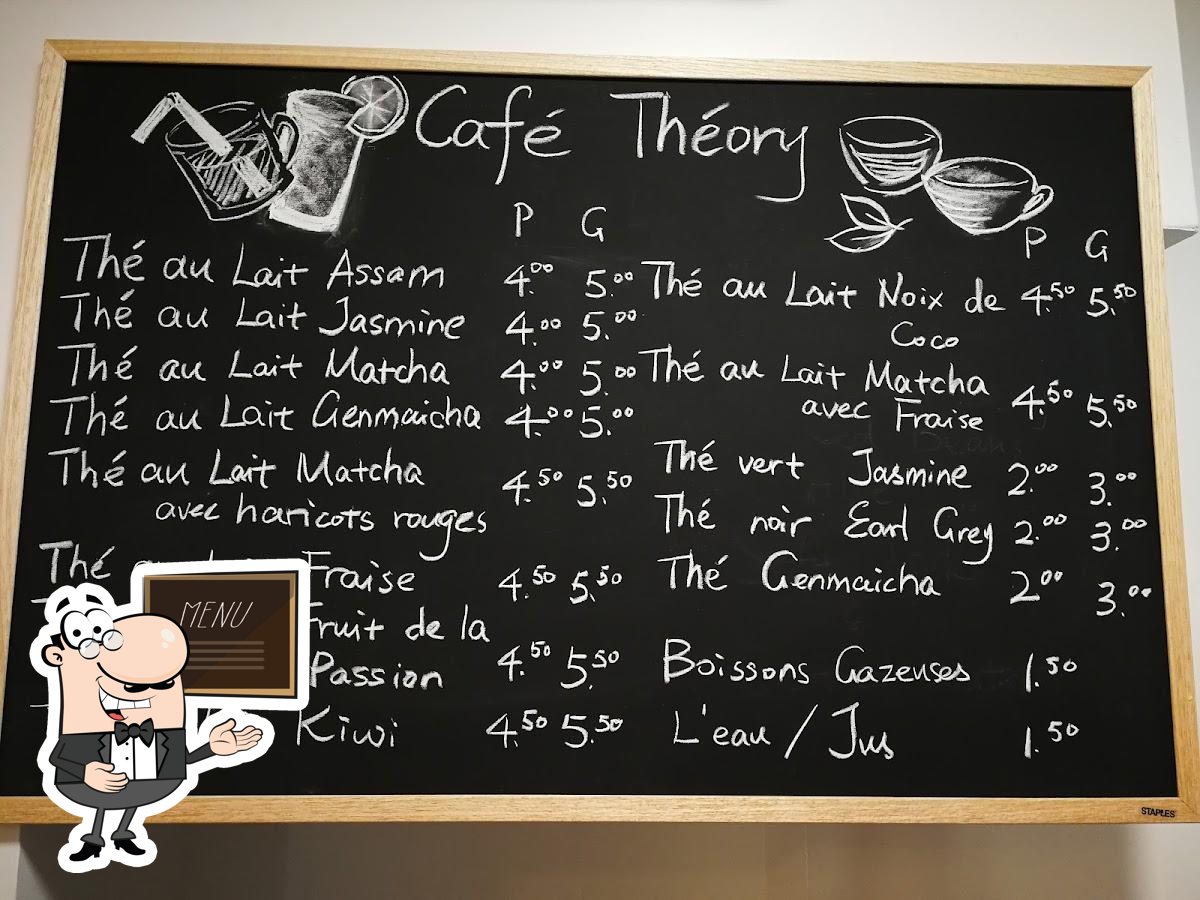 Café Théory
P G
Thé au Lait Assam 4.00 5.00
Thé au Lait Jasmine 4.00 5.00
Thé au Lait Matcha 4.00 5.00
Thé au Lait Genmaicha 4.00 5.00
Thé au Lait Matcha
avec haricots rouges 4.50 5.50
Thé Fraise 4.50 5.50
Fruit de la
Passion 4.50 5.50
Kiwi 4.50 5.50
P G
Thé au Lait Noix de 4.50 5.50
Coco
Thé au Lait Matcha
avec Fraise 4.50 5.50
Thé vert Jasmine 2.00 3.00
Thé noir Earl Grey 2.00 3.00
Thé Genmaicha 2.00 3.00
Boissons Gazeuses 1.50
L'eau / Jus 1.50
MENU
STAPLES